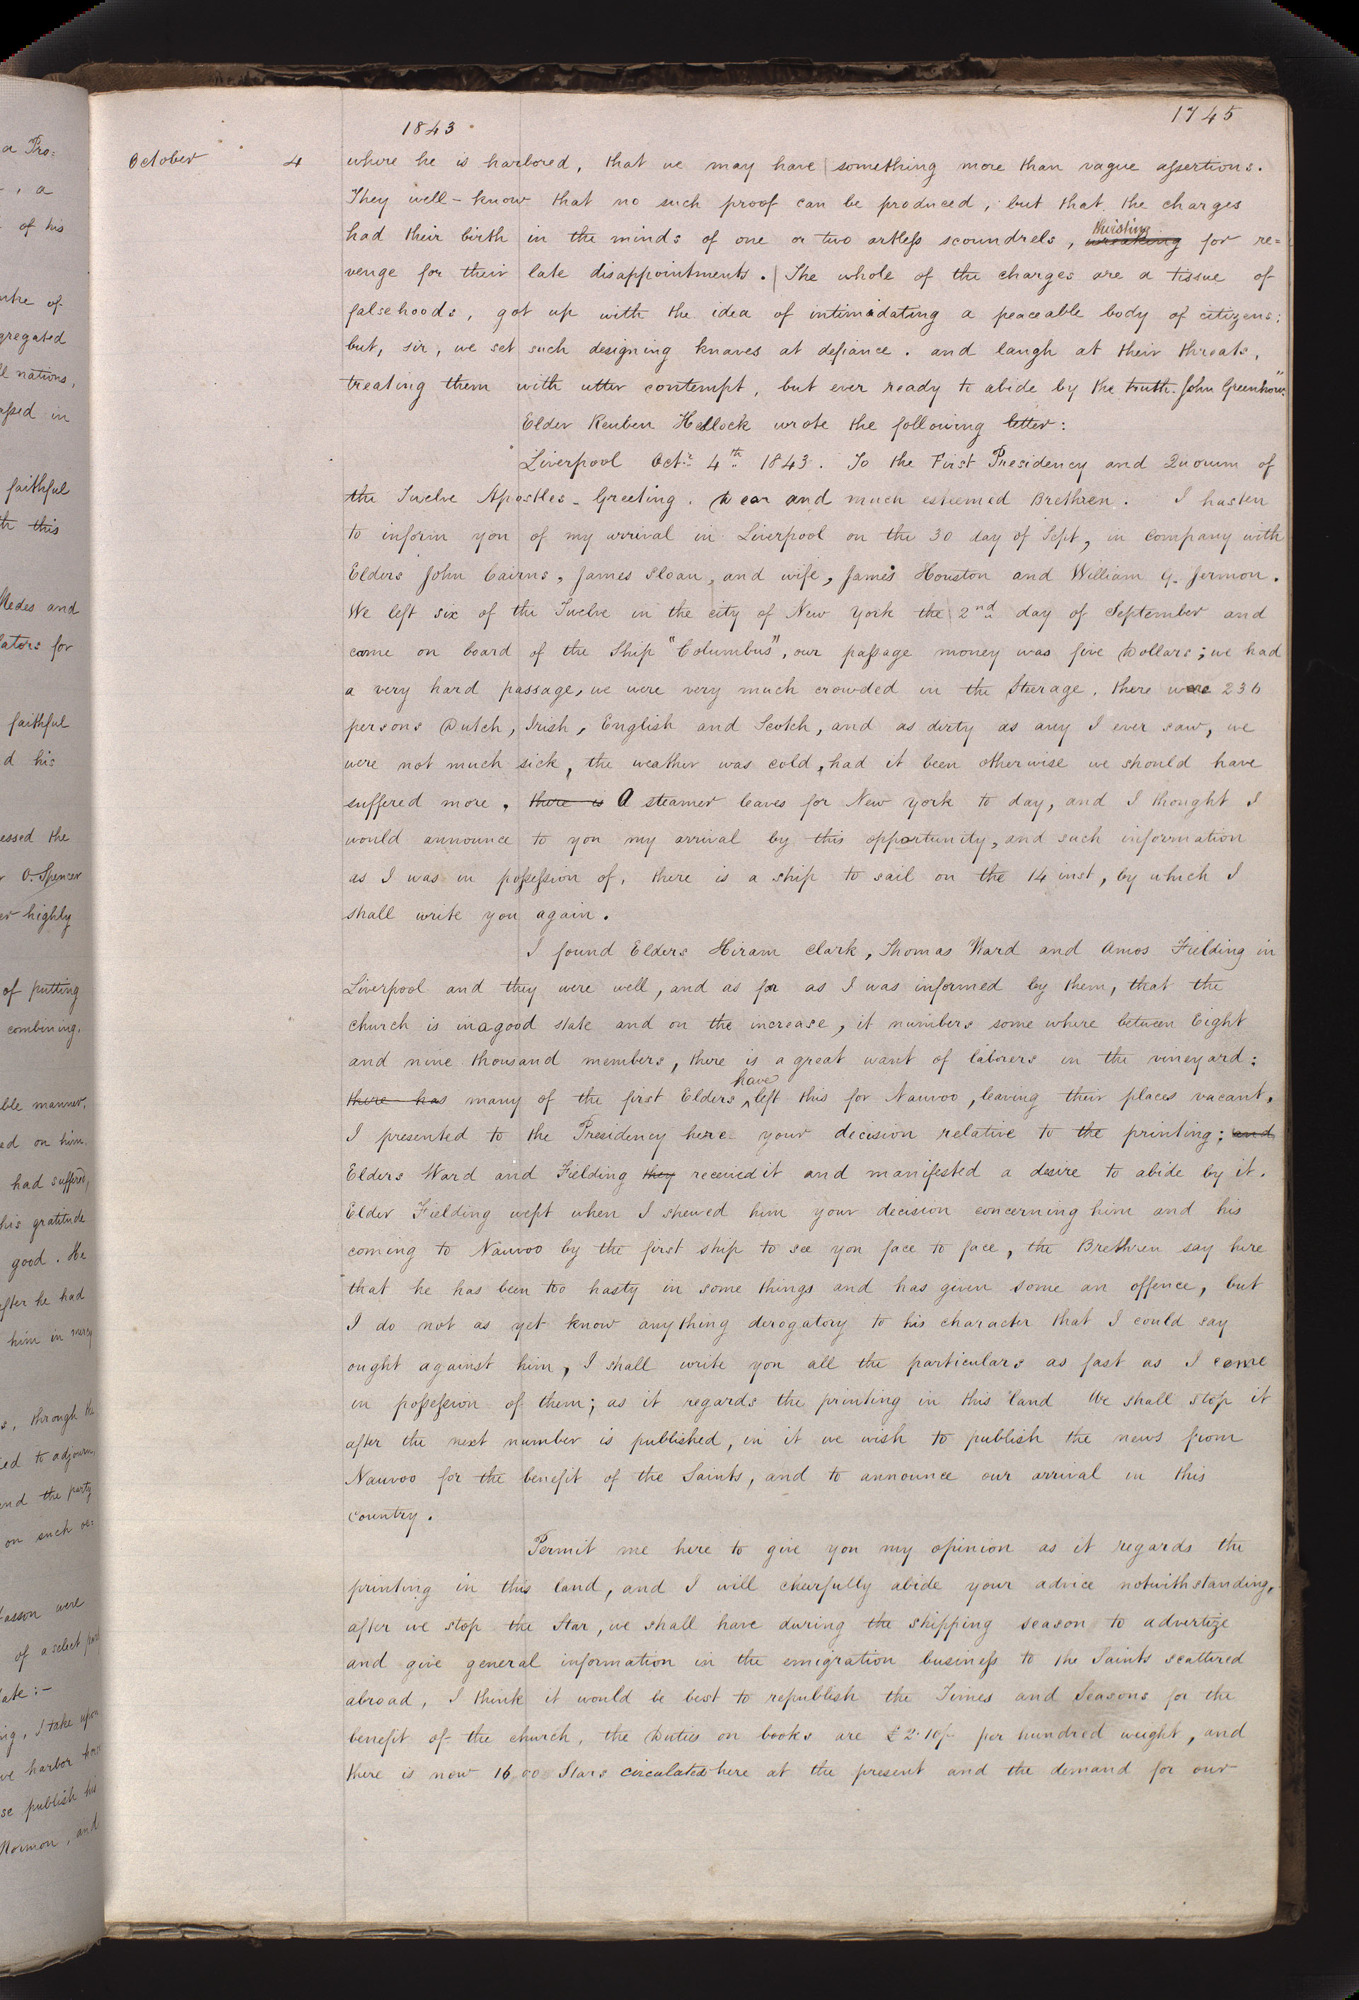 a Pro=
, a
of his
of
gregated
nations,
assed in
faithful
this
Medes and
lators for
faithful
d his
essed the
O. Spencer
highly
of putting
combining.
ble manner,
ed on him.
had suffered,
his gratitude
good. He
after he had
him in mercy
s, through the
ied to adjourn,
and the party
on such oc=
were
of a select
ate:—
ng, I take upon
harbor
se publish his
Mormon, and
1745
1843
October 4 where he is harbored, that we may have something more than vague assertions.
They well-know that no such proof can be produced, but that the charges
had their birth in the minds of one or two artless scoundrels, thirsting wreaking for re=
venge for their late disappointments. The whole of the charges are a tissue of
falsehoods, got up with the idea of intimidating a peaceable body of citizens;
but, sir, we set such designing knaves at defiance. and laugh at their threats,
treating them with utter contempt, but ever ready to abide by the truth. John Greenhow."
Elder Reuben Hedlock wrote the following letter:
Liverpool Octr. 4th 1843. To the First Presidency and Quorum of
the Twelve Apostles - Greeting. Dear and much esteemed Brethren. I hasten
to inform you of my arrival in Liverpool on the 30 day of Sept, in company with
Elders John Cairns, James Sloan, and wife, James Houston and William G. Jermon.
We left six of the Twelve in the city of New York the 2nd day of September and
came on board of the Ship "Columbus", our passage money was five Dollars; we had
a very hard passage, we were very much crowded in the Sterage, there were 236
persons Dutch, Irish, English and Scotch, and as dirty as any I ever saw, we
were not much sick, the weather was cold, had it been otherwise we should have
suffered more. there is A steamer leaves for New York to day, and I thought I
would announce to you my arrival by this opportunity, and such information
as I was in possession of, there is a ship to sail on the 14 inst, by which I
shall write you again.
I found Elders Hiram Clark, Thomas Ward and Amos Fielding in
Liverpool and they were well, and as far as I was informed by them, that the
church is in a good state and on the increase, it numbers some where between Eight
and nine thousand members, there is a great want of laborers in the vineyard:
there has many of the first Elders have left this for Nauvoo, leaving their places vacant,
I presented to the Presidency here your decision relative to the printing; and
Elders Ward and Fielding they received it and manifested a desire to abide by it.
Elder Fielding wept when I shewed him your decision concerning him and his
coming to Nauvoo by the first ship to see you face to face, the Brethren say here
that he has been too hasty in some things and has given some an offence, but
I do not as yet know anything derogatory to his character that I could say
ought against him, I shall write you all the particulars as fast as I come
in possession of them; as it regards the printing in this land We shall stop it
after the next number is published, in it we wish to publish the news from
Nauvoo for the benefit of the Saints, and to announce our arrival in this
country.
Permit me here to give you my opinion as it regards the
printing in this land, and I will cheerfully abide your advice notwithstanding,
after we stop the Star, we shall have during the shipping season to advertize
and give general information in the emigration business to the Saints scattered
abroad, I think it would be best to republish the Times and Seasons for the
benefit of the church, the Duties on books are £2.10/- per hundred weight, and
there is now 1600 Stars circulated here at the present and the demand for our